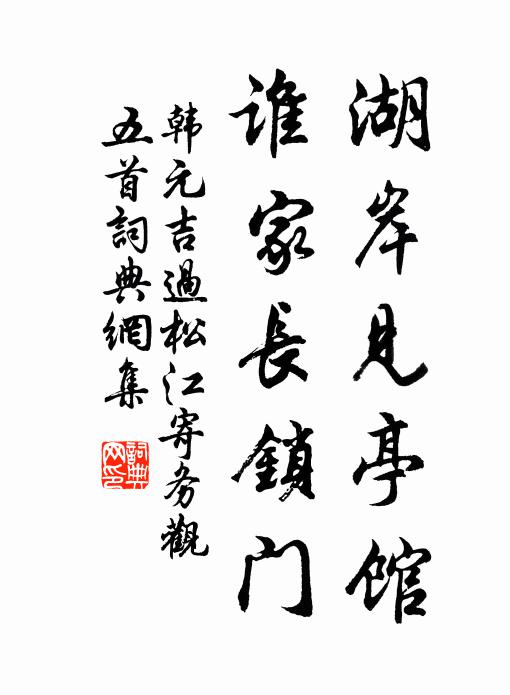 湖岸見亭館
誰家長鎖門
韩元吉過松江寄务觀
五首詞典網集
詞典
网印